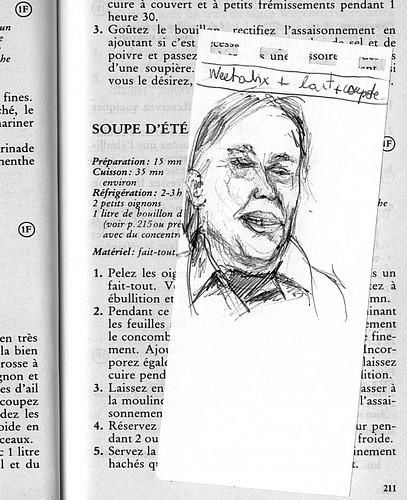 1F
fines.
ché, le
ariner
rinade
menthe
1F
en très
la bien
rosse à
gnon et
es d'ail
coupez
dez les
oide en
ceaux.
1 litre
l et du
cuire à couvert et à petits frémissements pendant 1
heure 30.
3. Goûtez le bouillon, rectifiez l'assaisonnement en
ajoutant si c'est de sel et de
poivre et passez
d'une soupière.
vous le désirez,
+ lait +
SOUPE D'ÉTÉ
Préparation : 15 mn
Cuisson : 35 mn
environ
Réfrigération : 2-3 h
2 petits oignons
1 litre de bouillon d
(voir p. 215 ou pré
avec du concentr
Matériel : fait-tout,
1. Pelez les oig un
fait-tout. V tez à
ébullition et mn.
2. Pendant ce inant
les feuilles ement
le concomb fine-
ment. Ajou Incor-
porez égale laissez
cuire pend dition.
3. Laissez en asser à
la mouline l'assai-
sonnemen
4. Réservez ur pen-
dant 2 ou froide.
5. Servez la inement
hachés
211